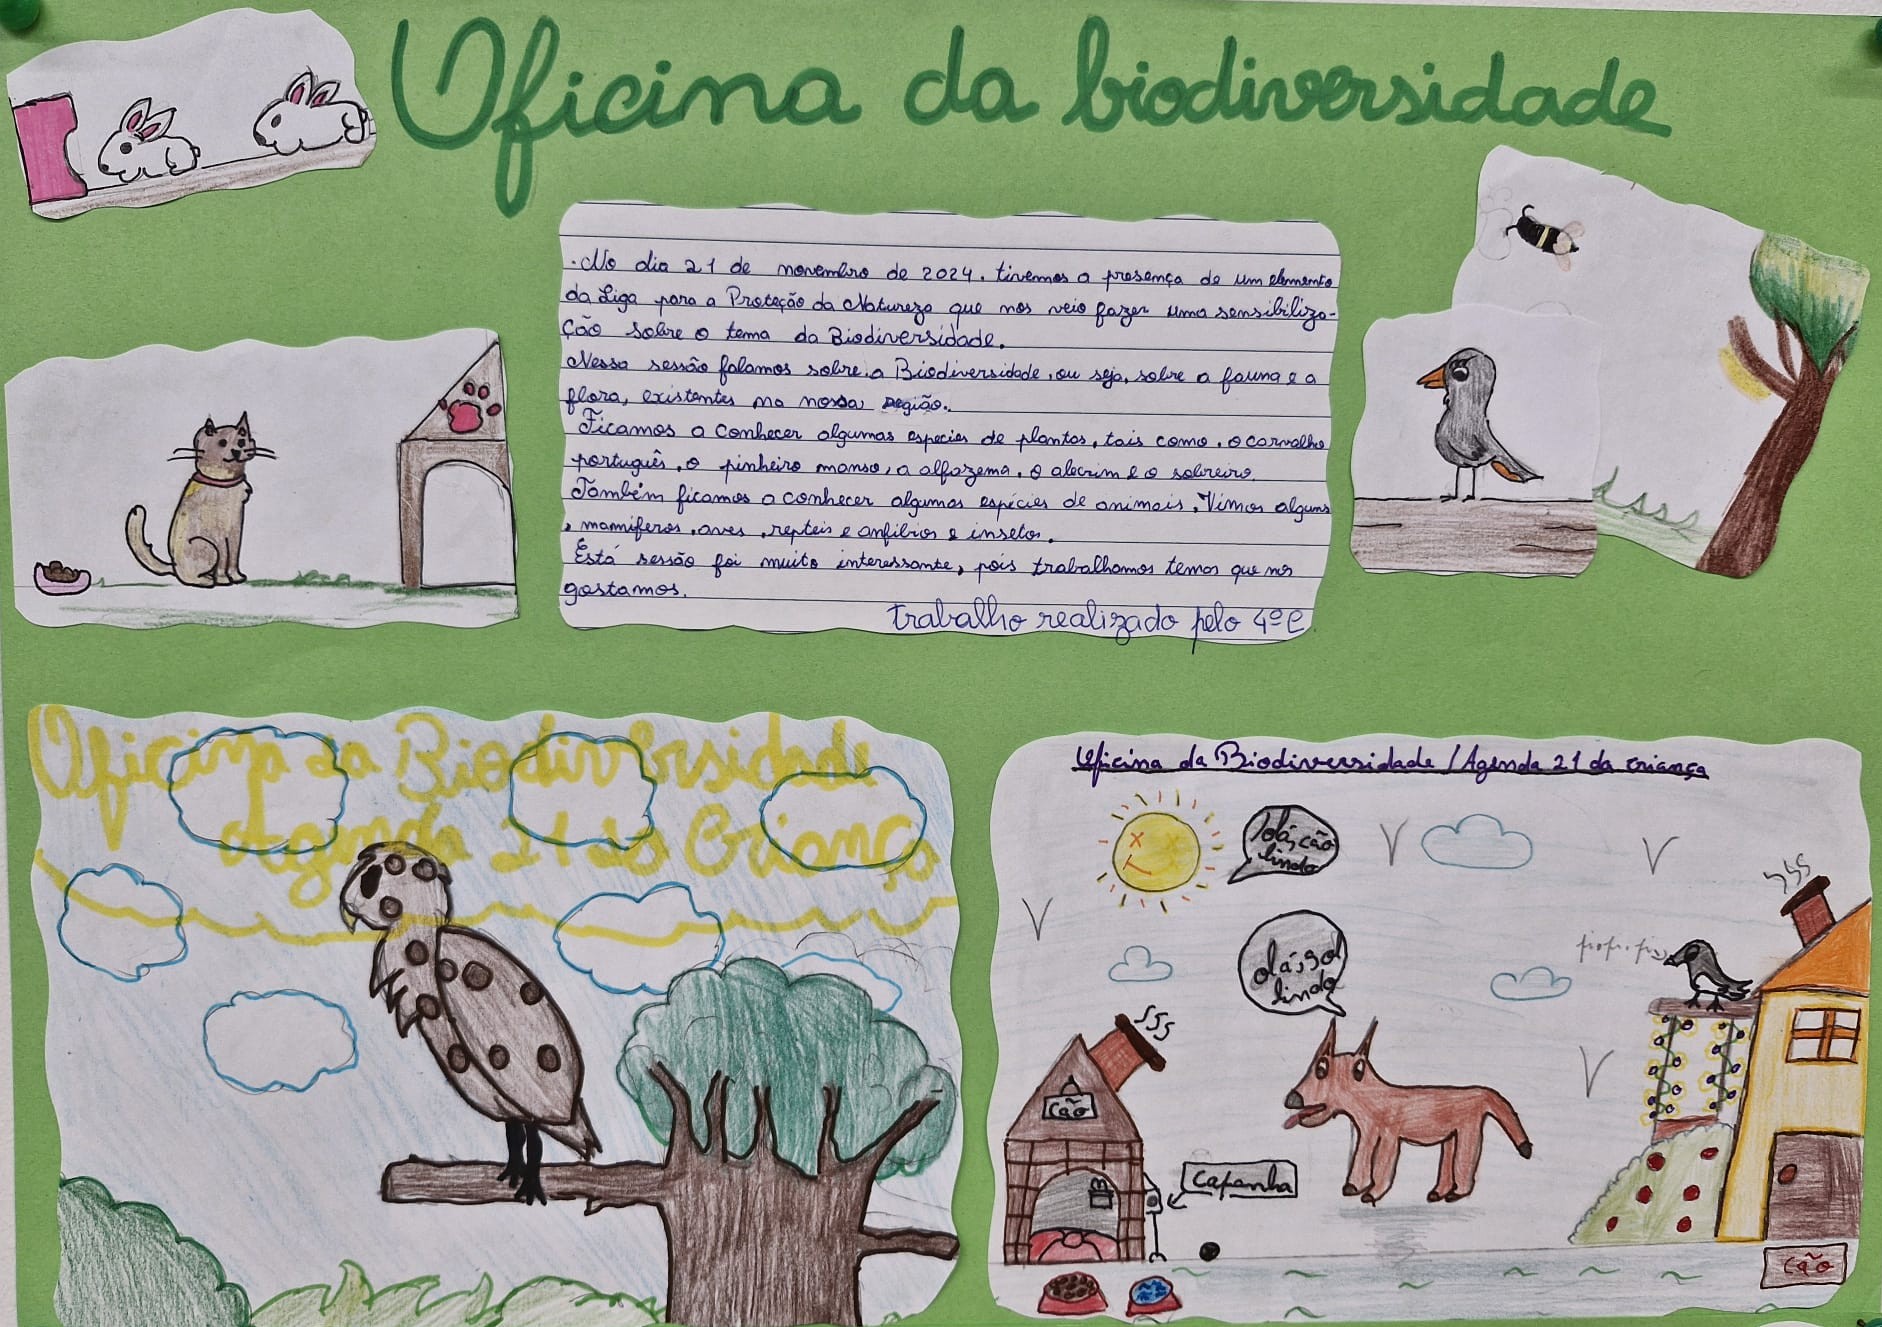 Oficina da biodiversidade
. No dia 21 de novembro de 2024. tivemos a presença de um elemento
da Liga para a Proteção da Natureza que nos veio fazer uma sensibiliza-
ção sobre o tema da Biodiversidade.
Nessa sessão falamos sobre a Biodiversidade, ou seja, sobre a fauna e a
flora, existentes na nossa região.
Ficamos a conhecer algumas especies de plantas, tais como, o carvalho
português, o pinheiro manso, a alfazema, o alecrim e o sobreiro.
Também ficamos a conhecer algumas espécies de animais. Vimos alguns
, mamíferos, aves, repteis e anfibios e insetos.
Está sessão foi muito interessante, pois trabalhamos temas que nos
gostamos.
trabalho realizado pelo 4º C
Oficina da Biodiversidade
Agenda 21 da Criança
Oficina da Biodiversidade / Agenda 21 da criança
olá, cão
lindo
olá, sol
lindo
piopi.pi
cão
Campanha
cão